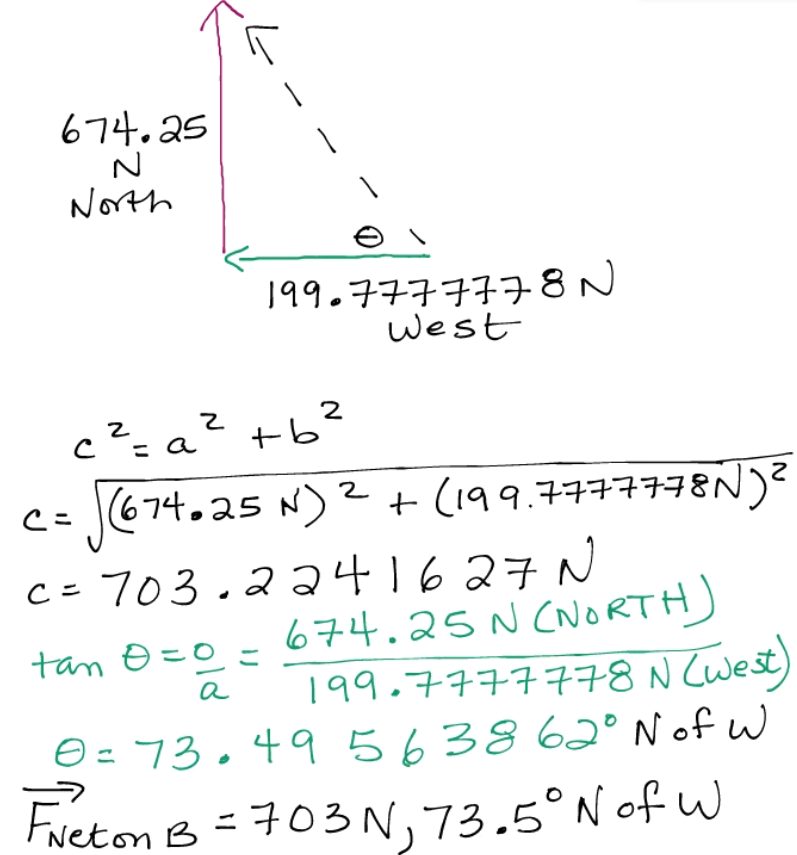 674.25
N
North
θ
199.7777778 N
West
c² = a² + b²
c = √(674.25 N)² + (199.7777778N)²
c = 703.2241627 N
tan θ = o/a = 674.25 N (NORTH) / 199.7777778 N (West)
θ = 73.49563862° N of W
F⃗Net on B = 703 N, 73.5° N of W